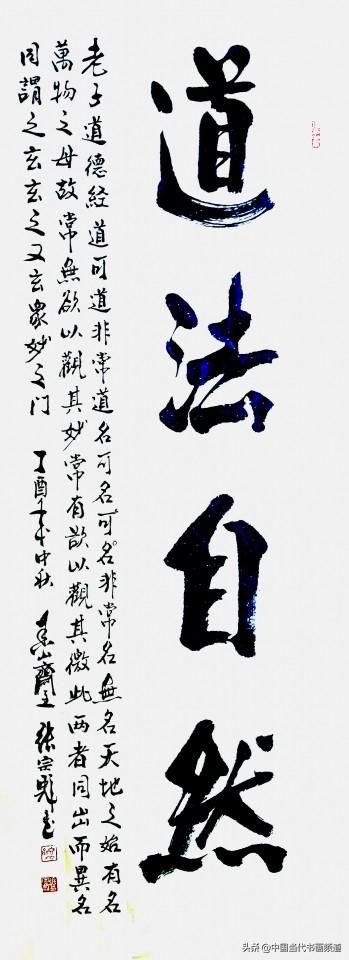 道法自然
老子道德经道可道非常道名可名可名非常名無名天地之始有名
萬物之母故常無欲以觀其妙常有欲以觀其微此两者同出而異名
同謂之玄玄之又玄衆妙之门 丁酉年中秋 山齋主 张宗
头条 @中国当代书画频道